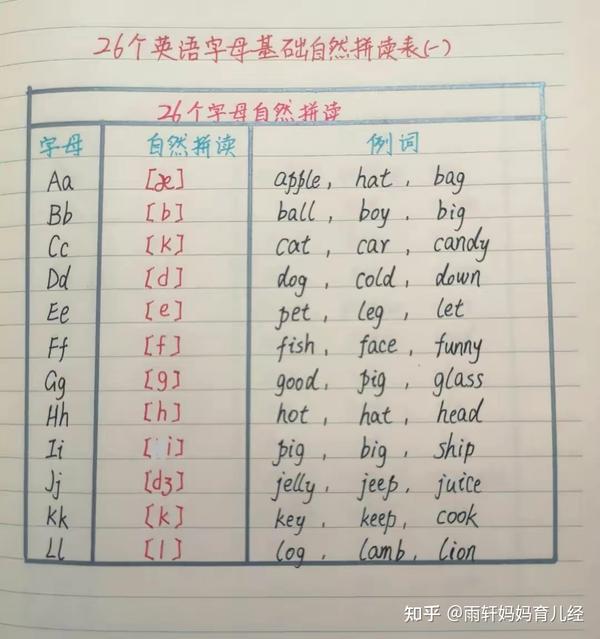 26个英语字母基础自然拼读表(一)
26个字母自然拼读
字母 自然拼读 例词
Aa [æ] apple, hat, bag
Bb [b] ball, boy, big
Cc [k] cat, car, candy
Dd [d] dog, cold, down
Ee [e] pet, leg, let
Ff [f] fish, face, funny
Gg [g] good, pig, glass
Hh [h] hot, hat, head
Ii [i] pig, big, ship
Jj [dʒ] jelly, jeep, juice
Kk [k] key, keep, cook
Ll [l] log, lamb, lion
知乎 @雨轩妈妈育儿经